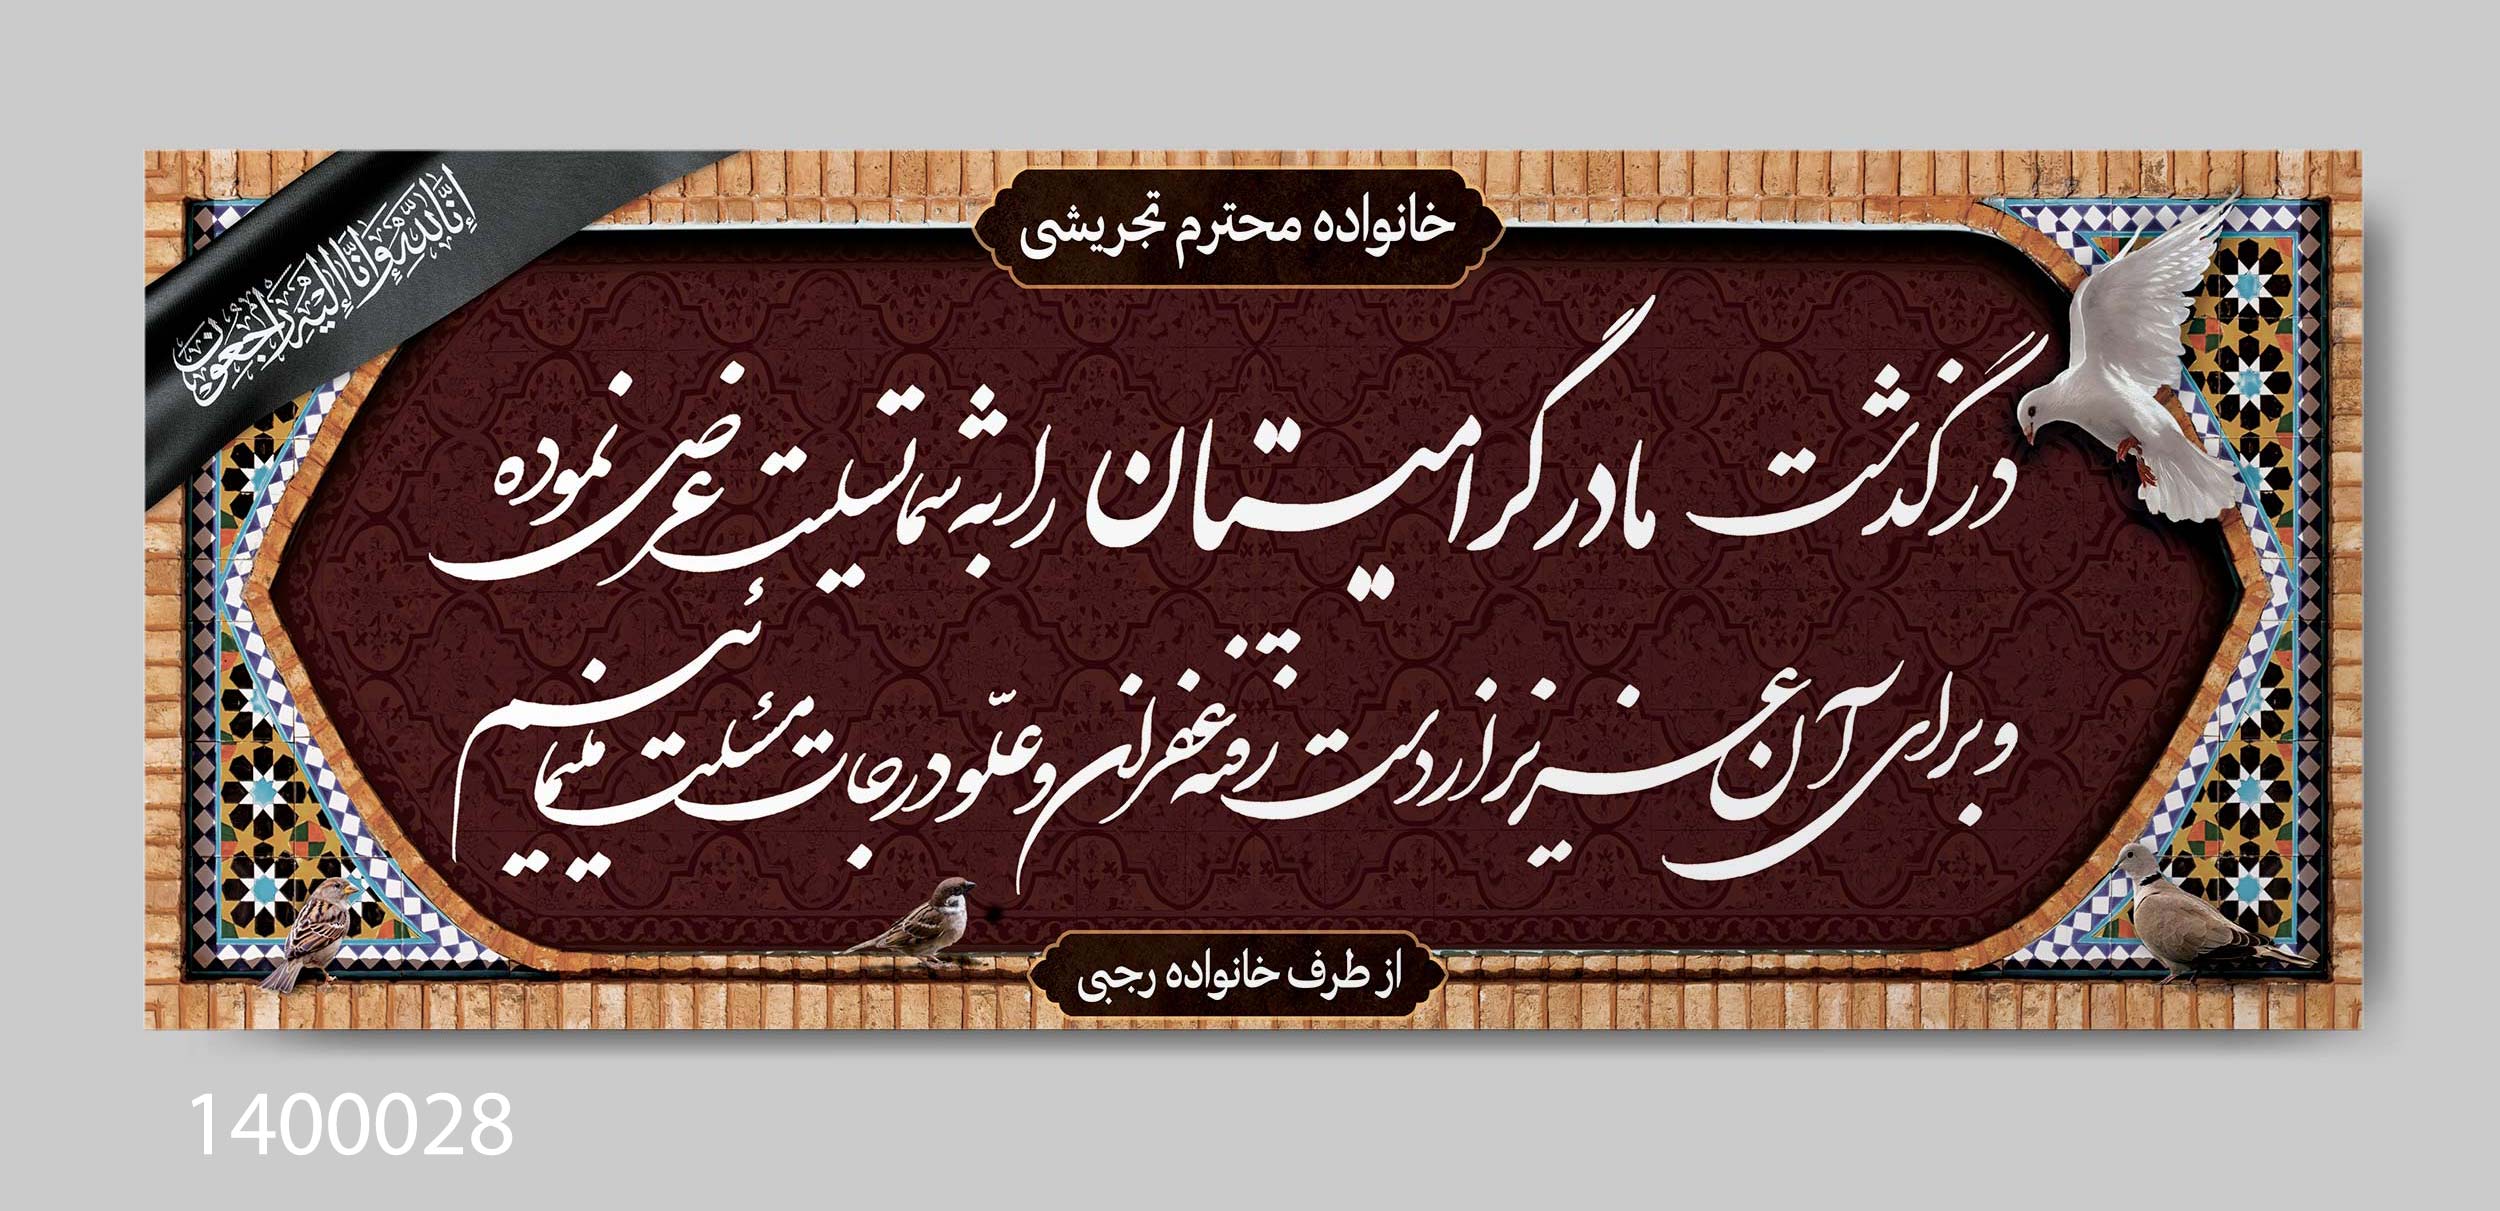 إنا لله وإنا إليه راجعون
خانواده محترم تجریشی
درگذشت مادر گرامیتان را به شما تسلیت عرض نموده
و برای آن عزیز از دست رفته غفران و علّو درجات مسئلت مینمائیم
از طرف خانواده رجبی
1400028